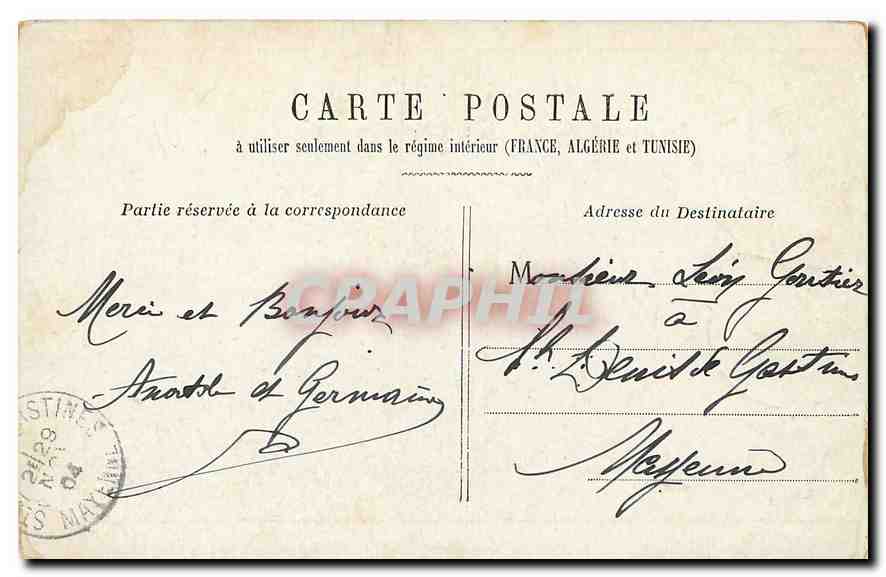 CARTE POSTALE
à utiliser seulement dans le régime intérieur (FRANCE, ALGÉRIE et TUNISIE)
Partie réservée à la correspondance
Merci et Bonjour
Anatole et Germaine
Adresse du Destinataire
Monsieur Léon Goutier
à
St Denis de Gastines
Mayenne
CRAPHIL
STINES
29
04
MAYENNE